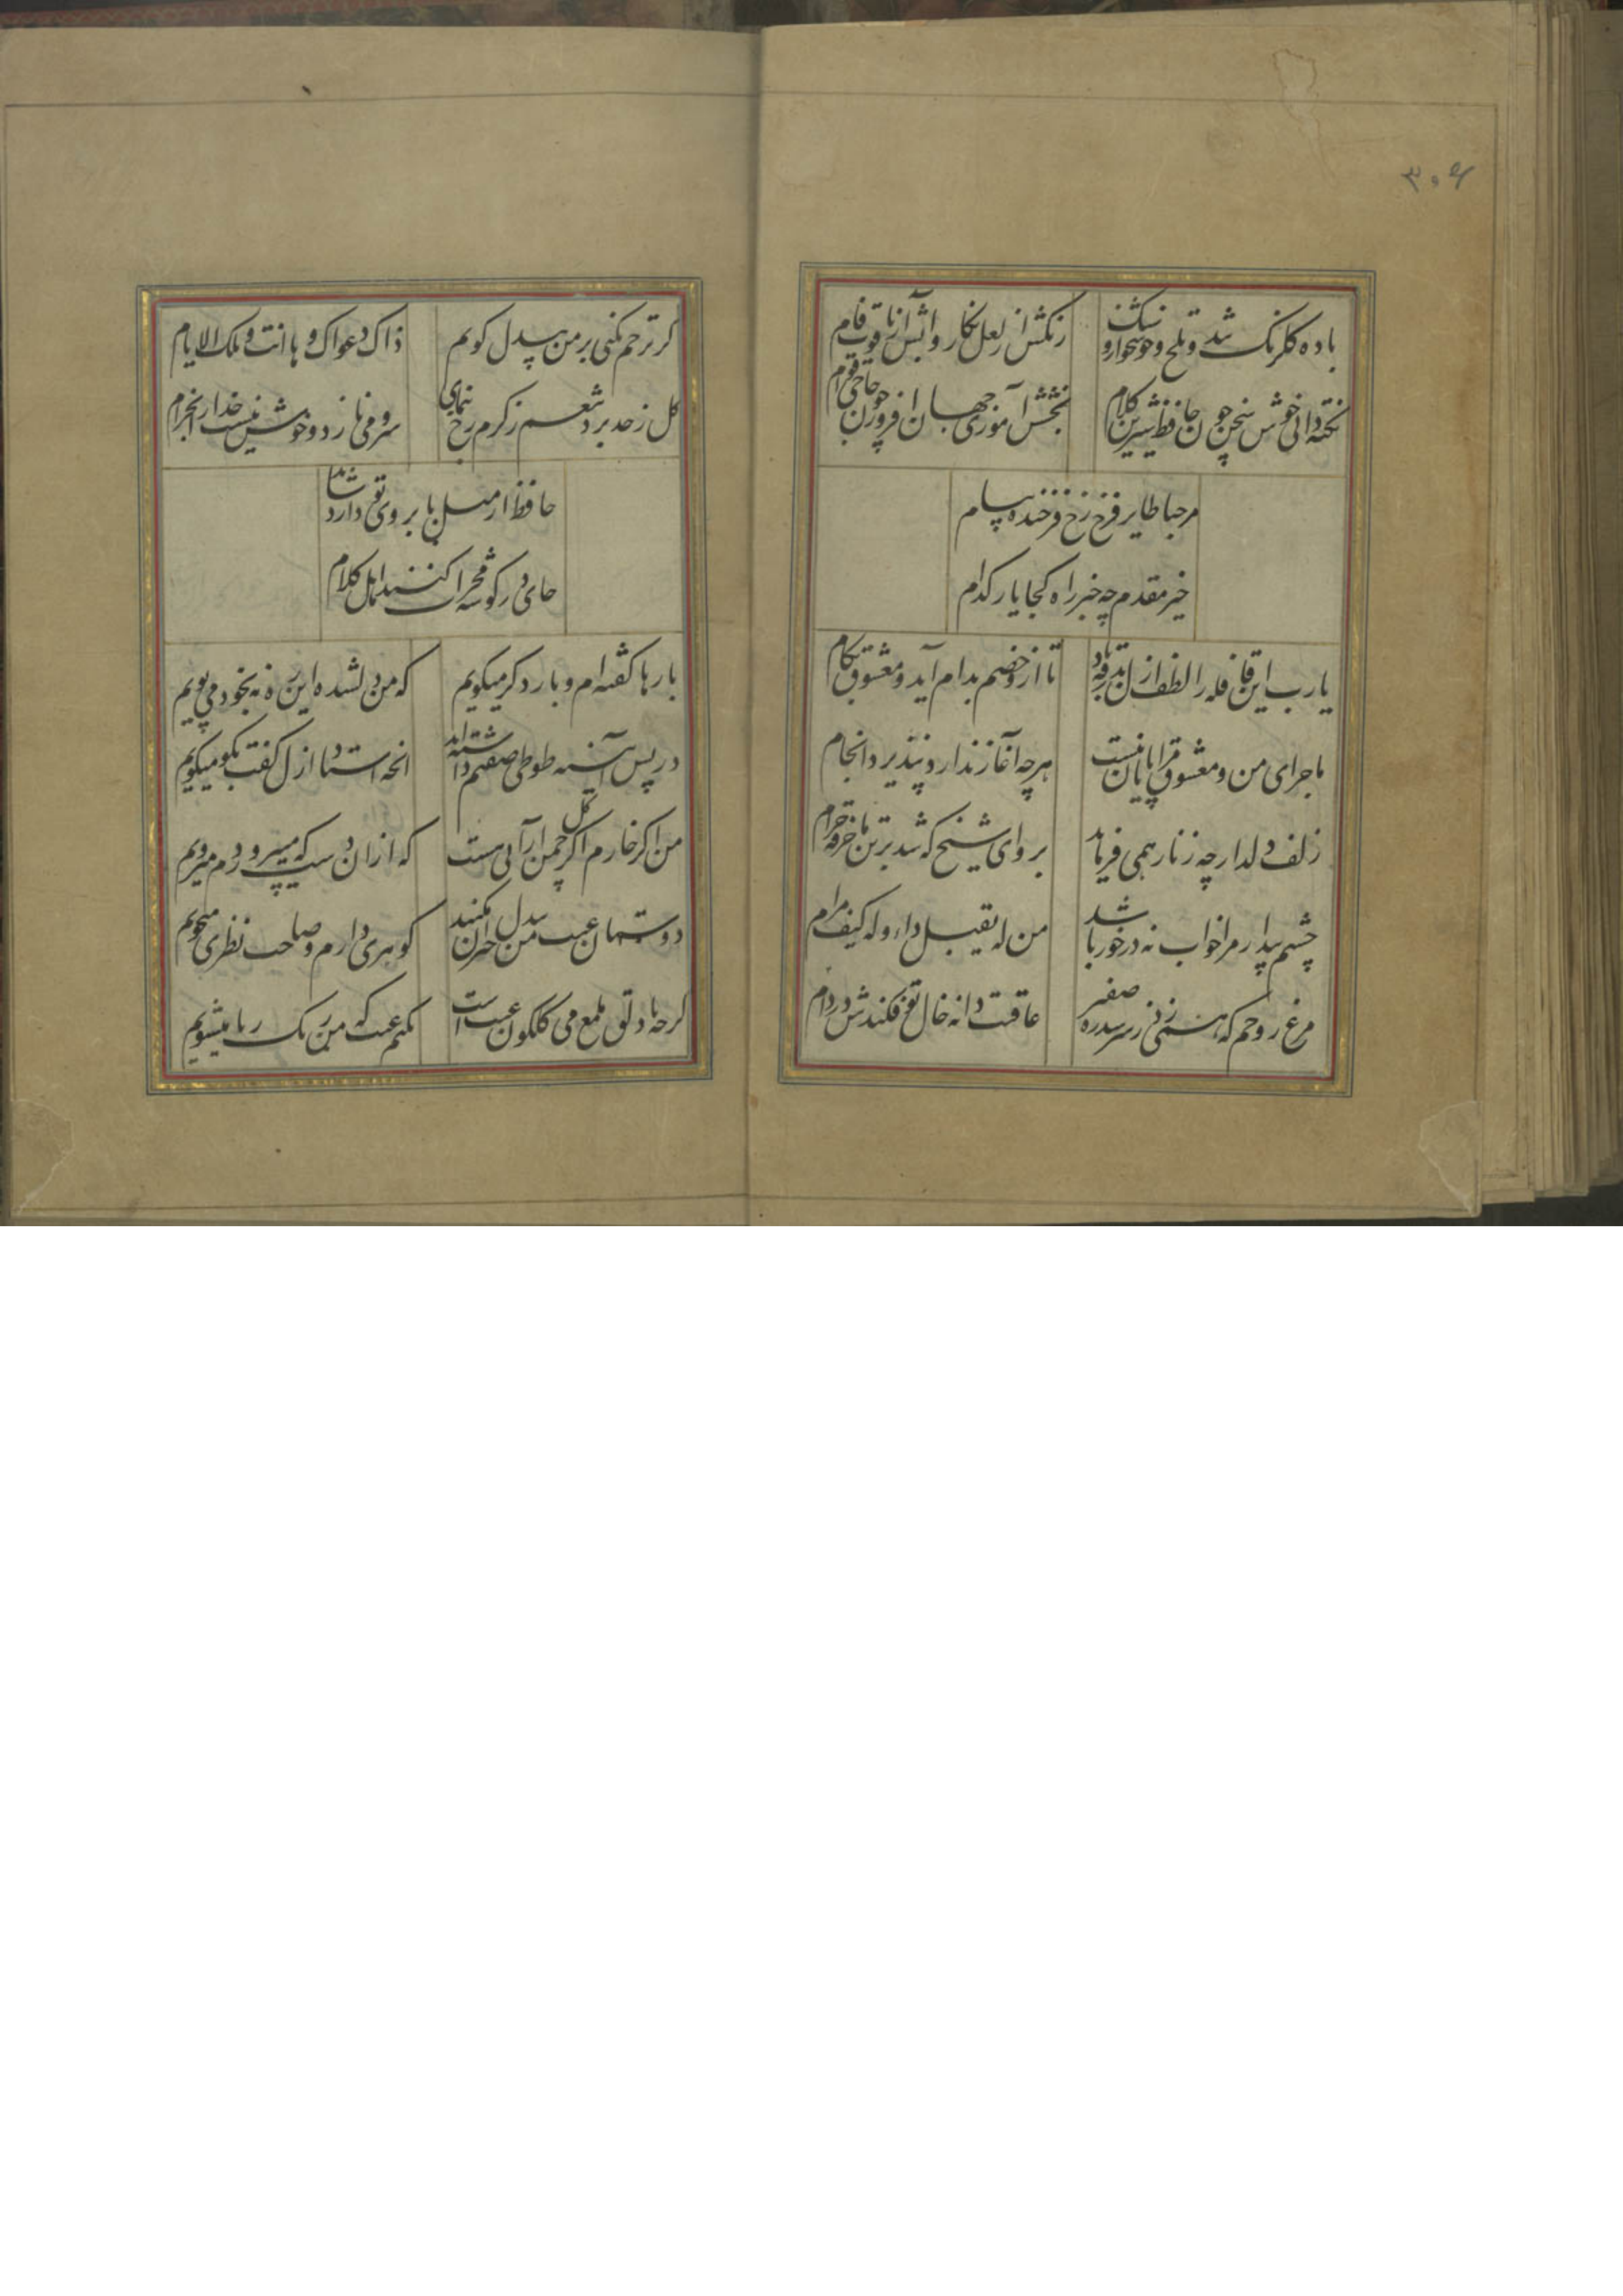 ۳۰۶
باده گلرنگ شد و تلخ و خوشخوار و سبک
رنگش از لعل نگار و آبش از یاقوت فام
نکته دانی خوش سخن چون حافظ شیرین کلام
بخشش آموزی جهان افروز چون حاجی قوام
مرحبا طایر فرخ رخ فرخنده پیام
خیر مقدم چه خبر راه کجا یار کدام
یا رب این قافله را لطف ازل بدرقه باد
تا ازو خصم بدام آید و معشوق بکام
ماجرای من و معشوق مرا پایان نیست
هرچه آغاز ندارد نپذیرد انجام
زلف دلدار چه زنار همی فرماید
برو ای شیخ که شد بر تن ما خرقه حرام
چشم بیدار مرا خواب نه درخور باشد
من له یقبل داء وله کیف مرام
مرغ روحم که همی زد ز سر سدره صفیر
عاقبت دانه خال تو فکندش در دام
کر ترحم نکنی بر من بیدل گویم
ذاک دعوای وها انت و تلک الایام
کل ز حد برد تنعم ز کرم رخ بنمای
سرو می نازد و خوش نیست خدا را بخرام
حافظ ار میل بابروی تو دارد شاید
جای در گوشه محراب کنند اهل کلام
بارها گفته ام و بار دکر میگویم
که من دلشده این ره نه بخود می پویم
در پس آینه طوطی صفتم داشته اند
انچه استاد ازل گفت بگو میگویم
من اکر خارم اکر گل چمن آرائی هست
که از ان دست که میپروردم میرویم
دوستان عیب من بیدل حیران مکنید
گوهری دارم و صاحب نظری میجویم
کرچه با دلق ملمع می گلگون عیب است
مکنم عیب کزو رنگ ریا میشویم